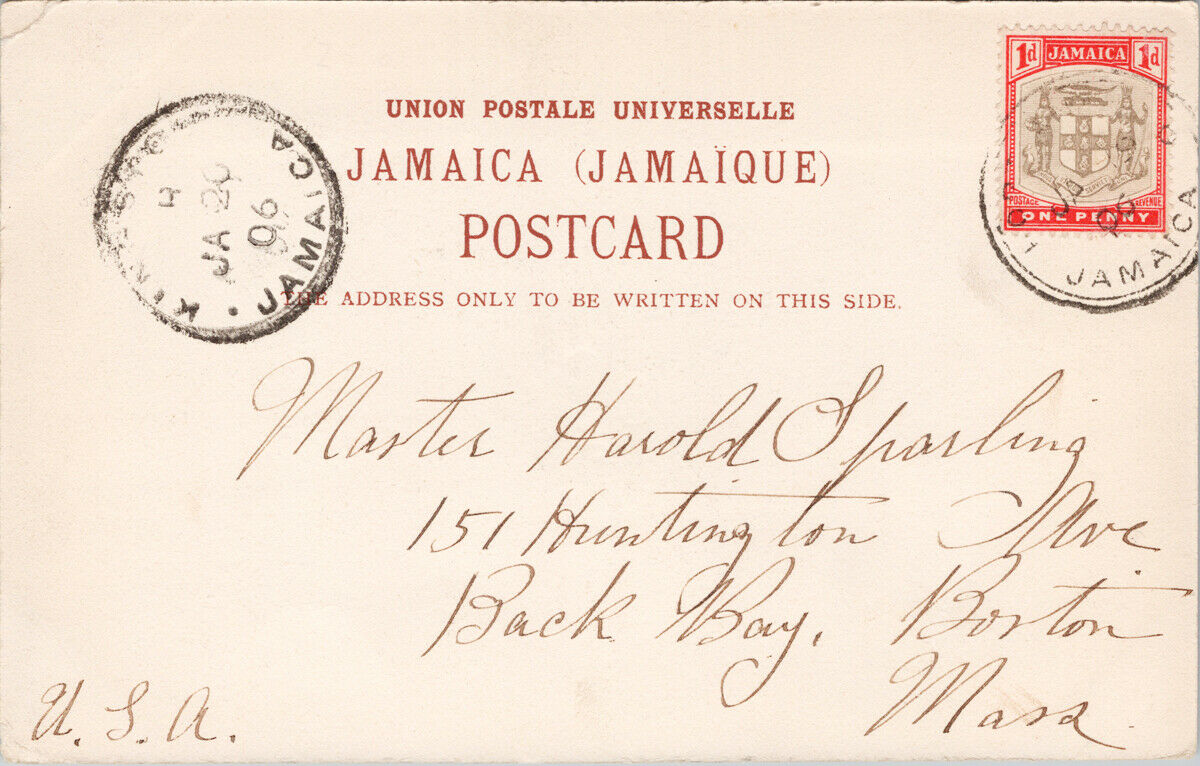 UNION POSTALE UNIVERSELLE
JAMAICA (JAMAÏQUE)
POSTCARD
THE ADDRESS ONLY TO BE WRITTEN ON THIS SIDE.
1d JAMAICA 1d
POSTAGE REVENUE
ONE PENNY
JAMAICA
KINGSTON
JAMAICA
JA 20
06
Master Harold Sparling
151 Huntington Ave
Back Bay, Boston
Mass
U. S. A.